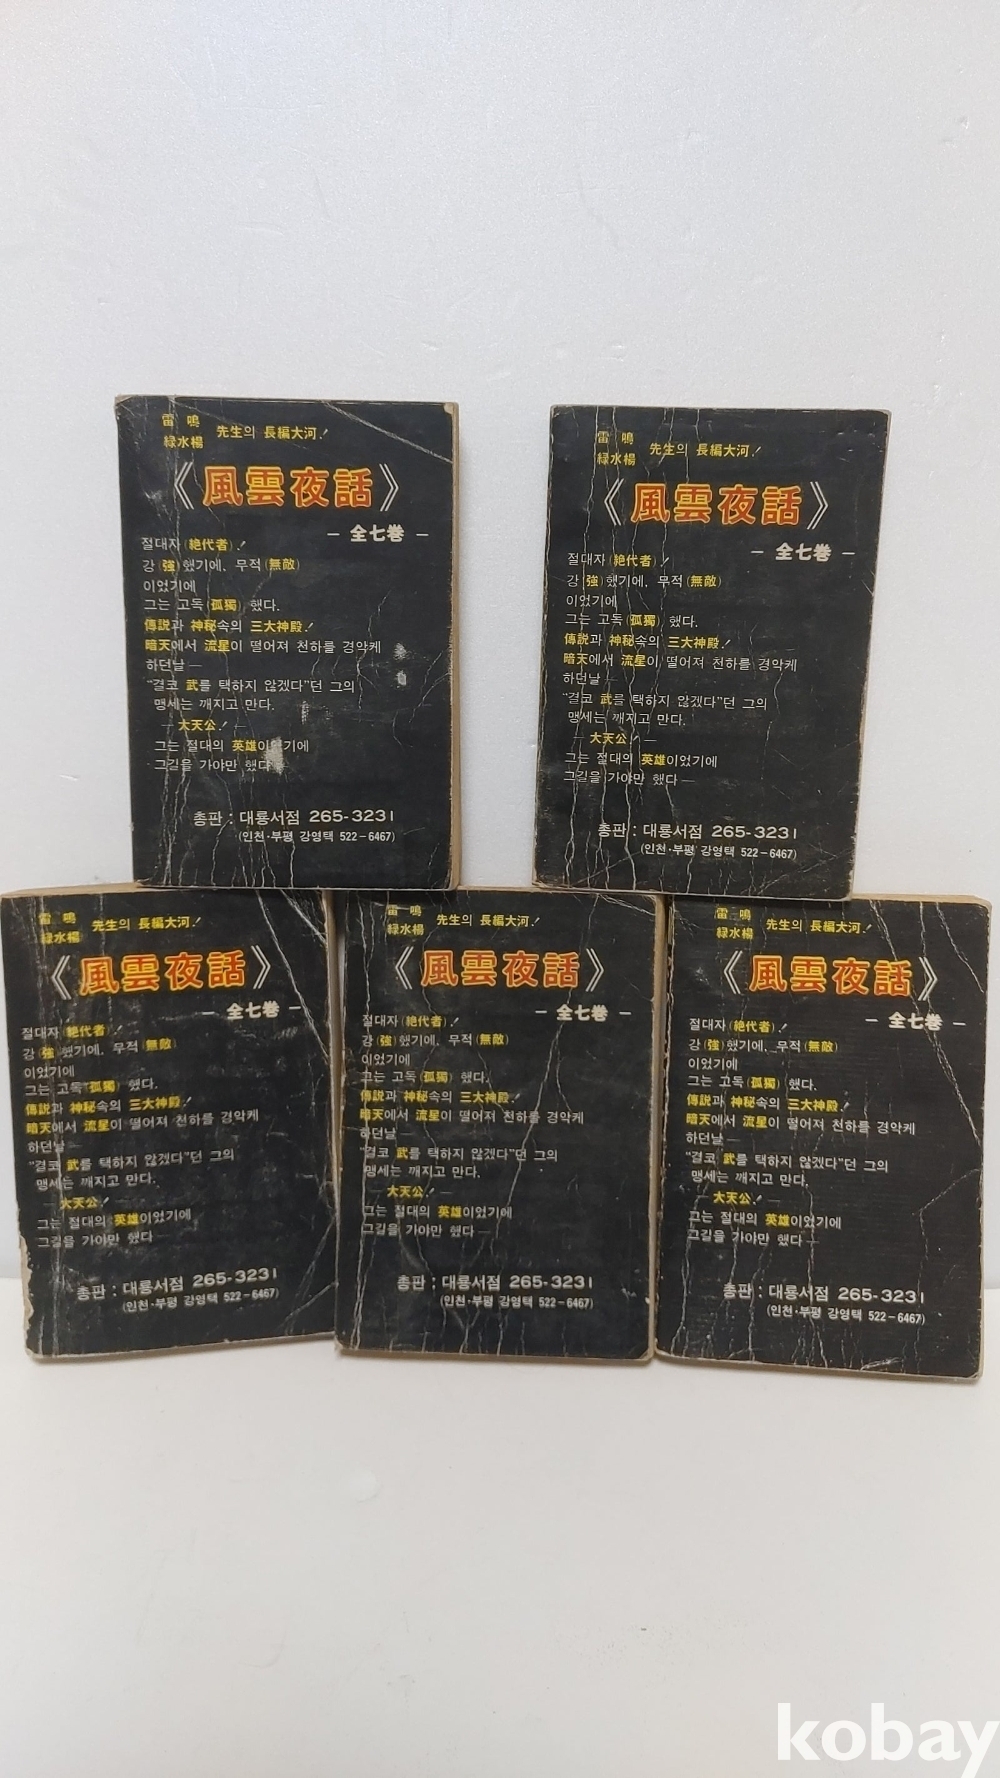 雷 鳴
緑水楊 先生의 長編大河!
《風雲夜話》
— 全七巻 —
절대자(絶代者)!
강(強)했기에, 무적(無敵)
이었기에
그는 고독(孤獨)했다.
傳説과 神秘속의 三大神殿!
暗天에서 流星이 떨어져 천하를 경악케
하던날 —
"결코 武를 택하지 않겠다"던 그의
맹세는 깨지고 만다.
— 大天公! —
그는 절대의 英雄이었기에
그길을 가야만 했다 —
총판 : 대룡서점 265-3231
(인천·부평 강영택 522-6467)
雷 鳴
緑水楊 先生의 長編大河!
《風雲夜話》
— 全七巻 —
절대자(絶代者)!
강(強)했기에, 무적(無敵)
이었기에
그는 고독(孤獨)했다.
傳説과 神秘속의 三大神殿!
暗天에서 流星이 떨어져 천하를 경악케
하던날 —
"결코 武를 택하지 않겠다"던 그의
맹세는 깨지고 만다.
— 大天公! —
그는 절대의 英雄이었기에
그길을 가야만 했다 —
총판 : 대룡서점 265-3231
(인천·부평 강영택 522-6467)
雷 鳴
緑水楊 先生의 長編大河!
《風雲夜話》
— 全七巻 —
절대자(絶代者)!
강(強)했기에, 무적(無敵)
이었기에
그는 고독(孤獨)했다.
傳説과 神秘속의 三大神殿!
暗天에서 流星이 떨어져 천하를 경악케
하던날 —
"결코 武를 택하지 않겠다"던 그의
맹세는 깨지고 만다.
— 大天公! —
그는 절대의 英雄이었기에
그길을 가야만 했다 —
총판 : 대룡서점 265-3231
(인천·부평 강영택 522-6467)
雷 鳴
緑水楊 先生의 長編大河!
《風雲夜話》
— 全七巻 —
절대자(絶代者)!
강(強)했기에, 무적(無敵)
이었기에
그는 고독(孤獨)했다.
傳説과 神秘속의 三大神殿!
暗天에서 流星이 떨어져 천하를 경악케
하던날 —
"결코 武를 택하지 않겠다"던 그의
맹세는 깨지고 만다.
— 大天公! —
그는 절대의 英雄이었기에
그길을 가야만 했다 —
총판 : 대룡서점 265-3231
(인천·부평 강영택 522-6467)
雷 鳴
緑水楊 先生의 長編大河!
《風雲夜話》
— 全七巻 —
절대자(絶代者)!
강(強)했기에, 무적(無敵)
이었기에
그는 고독(孤獨)했다.
傳説과 神秘속의 三大神殿!
暗天에서 流星이 떨어져 천하를 경악케
하던날 —
"결코 武를 택하지 않겠다"던 그의
맹세는 깨지고 만다.
— 大天公! —
그는 절대의 英雄이었기에
그길을 가야만 했다 —
총판 : 대룡서점 265-3231
(인천·부평 강영택 522-6467)
kobay